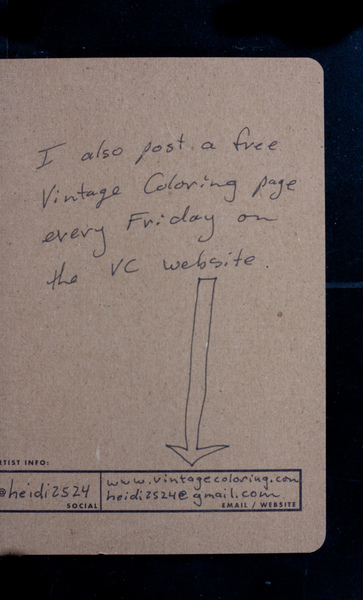 I also post a free
Vintage Coloring page
every Friday on
the VC website.
RTIST INFO:
@heidi2524
SOCIAL
www.vintagecoloring.com
heidi2524@gmail.com
EMAIL / WEBSITE